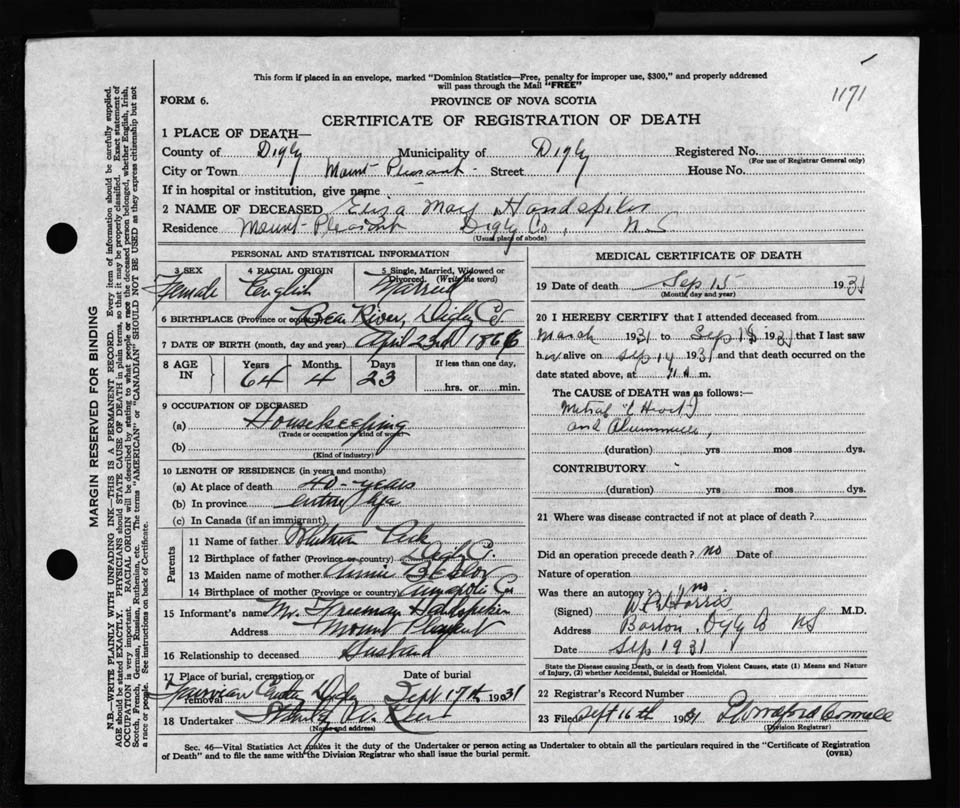 1171
This form if placed in an envelope, marked "Dominion Statistics—Free, penalty for improper use, $300," and properly addressed
will pass through the Mail "FREE"
FORM 6.
PROVINCE OF NOVA SCOTIA
CERTIFICATE OF REGISTRATION OF DEATH
1 PLACE OF DEATH—
County of Digby Municipality of Digby Registered No.
(For use of Registrar General only)
City or Town Mount Pleasant Street House No.
If in hospital or institution, give name
2 NAME OF DECEASED Eliza Mary Handspiker
Residence Mount Pleasant Digby Co., N.S.
(Usual place of abode)
PERSONAL AND STATISTICAL INFORMATION
3 SEX 4 RACIAL ORIGIN 5 Single, Married, Widowed or Divorced. (Write the word)
Female English Married
6 BIRTHPLACE (Province or country) Bear River, Digby Co.
7 DATE OF BIRTH (month, day and year) April 23rd
8 AGE IN Years Months Days If less than one day,
64 4 23 hrs. or min.
9 OCCUPATION OF DECEASED
(a) Housekeeping
(Trade or occupation or kind of work)
(b)
(Kind of industry)
10 LENGTH OF RESIDENCE (in years and months)
(a) At place of death 40-years
(b) In province entire life
(c) In Canada (if an immigrant)
Parents
11 Name of father
12 Birthplace of father (Province or country) Digby Co.
13 Maiden name of mother Annie
14 Birthplace of mother (Province or country) Annapolis Co
15 Informant's name Mr. Freeman Handspiker
Address Mount Pleasant
16 Relationship to deceased Husband
17 Place of burial, cremation or removal Date of burial
Digby Sept 17th, 1931
18 Undertaker
(Name and address)
MEDICAL CERTIFICATE OF DEATH
19 Date of death Sep 15 1931
(Month, day and year)
20 I HEREBY CERTIFY that I attended deceased from
March 1931 to Sep 15 1931 that I last saw
her alive on Sep 14 1931 and that death occurred on the
date stated above, at m.
The CAUSE OF DEATH was as follows:—
Mitral
and
(duration) yrs mos dys.
CONTRIBUTORY
(duration) yrs mos dys.
21 Where was disease contracted if not at place of death?
Did an operation precede death? no Date of
Nature of operation
Was there an autopsy? no
(Signed) Harris M.D.
Address Barton, Digby Co NS
Date Sep 1931
State the Disease causing Death, or in death from Violent Causes, state (1) Means and Nature
of Injury, (2) whether Accidental, Suicidal or Homicidal.
22 Registrar's Record Number
23 Filed Sept 16th 1931
(Division Registrar)
Sec. 46—Vital Statistics Act makes it the duty of the Undertaker or person acting as Undertaker to obtain all the particulars required in the "Certificate of Registration
of Death" and to file the same with the Division Registrar who shall issue the burial permit.
(OVER)
MARGIN RESERVED FOR BINDING
N.B.—WRITE PLAINLY WITH UNFADING INK—THIS IS A PERMANENT RECORD. Every item of information should be carefully supplied.
AGE should be stated EXACTLY. PHYSICIANS should STATE CAUSE OF DEATH in plain terms, so that it may be properly classified. Exact statement of
OCCUPATION is very important. RACIAL ORIGIN will be described by stating to what people or race the deceased person belonged, whether English, Irish,
Scotch, French, German, Russian, Ruthenian, etc. The terms "AMERICAN" or "CANADIAN" SHOULD NOT BE USED as they express citizenship but not
a race or people. See instructions on back of Certificate.